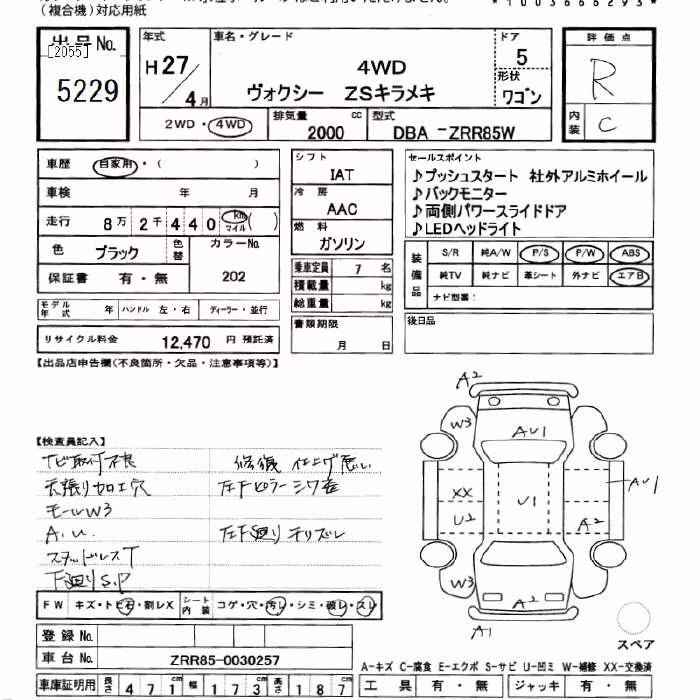 (複合機)対応用紙
*1003666293*
出品No.
[2055]
5229
年式
H27
4月
車名・グレード
4WD
ヴォクシー ZSキラメキ
ドア
5
形状
ワゴン
評価点
R
内装
C
2WD・4WD
排気量
2000 cc
型式
DBA -ZRR85W
車歴 自家用・( )
車検 年 月
走行 8万2千440 km マイル ( )
色 ブラック
色替
カラーNo.
202
保証書 有・無
モデル年式 年 ハンドル 左・右 ディーラー・並行
リサイクル料金 12,470 円 預託済
シフト
IAT
冷房
AAC
燃料
ガソリン
乗車定員 7 名
積載量 kg
総重量 kg
書類期限
月 日
セールスポイント
♪プッシュスタート 社外アルミホイール
♪バックモニター
♪両側パワースライドドア
♪LEDヘッドライト
装備品
S/R 純A/W P/S P/W ABS
純TV 純ナビ 革シート 外ナビ エアB
ナビ型番:
後日品
【出品店申告欄(不良箇所・欠品・注意事項等)】
【検査員記入】
ナビ取付不良
天張り加工穴
モールW3
A.U.
スタッドレスT
下廻りS.P
修復 仕上げ悪い
左Fピラーシワ歪
左F廻りチリズレ
FW キズ・トビ石・割レX
シート内装
コゲ・穴・汚レ・シミ・破レ・スレ
登録No.
車台No. ZRR85-0030257
車庫証明用 長さ 471cm 幅 173cm 高さ 187cm
A2
W3
AU1
XX
U2
U1
AU1
A2
W3
A2
A1
スペア
A-キズ C-腐食 E-エクボ S-サビ U-凹ミ W-補修 XX-交換済
工具 有・無 ジャッキ 有・無